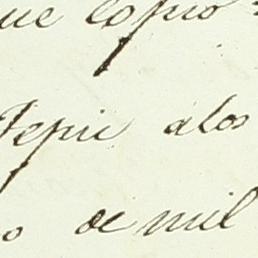 que copio
Tepic a los
o de mil